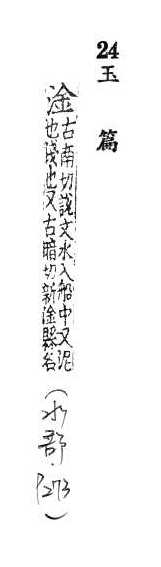 24玉篇
淦古南切說文水入船中又泥
也淺也又古暗切新淦縣名
(水部·P273)